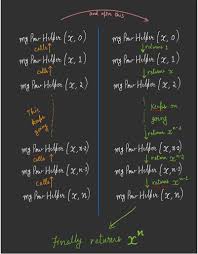 and after this
my Pow Helper (x, 0)
calls
my Pow Helper (x, 1)
calls
my Pow Helper (x, 2)
This
keeps
going
my Pow Helper (x, n-2)
calls
my Pow Helper (x, n-1)
calls
my Pow Helper (x, n)
my Pow Helper (x, 0)
returns 1
my Pow Helper (x, 1)
returns x
my Pow Helper (x, 2)
Keeps on
going
returns x^n-3
my Pow Helper (x, n-2)
returns x^n-2
my Pow Helper (x, n-1)
returns x^n-1
my Pow Helper (x, n)
Finally returns x^n